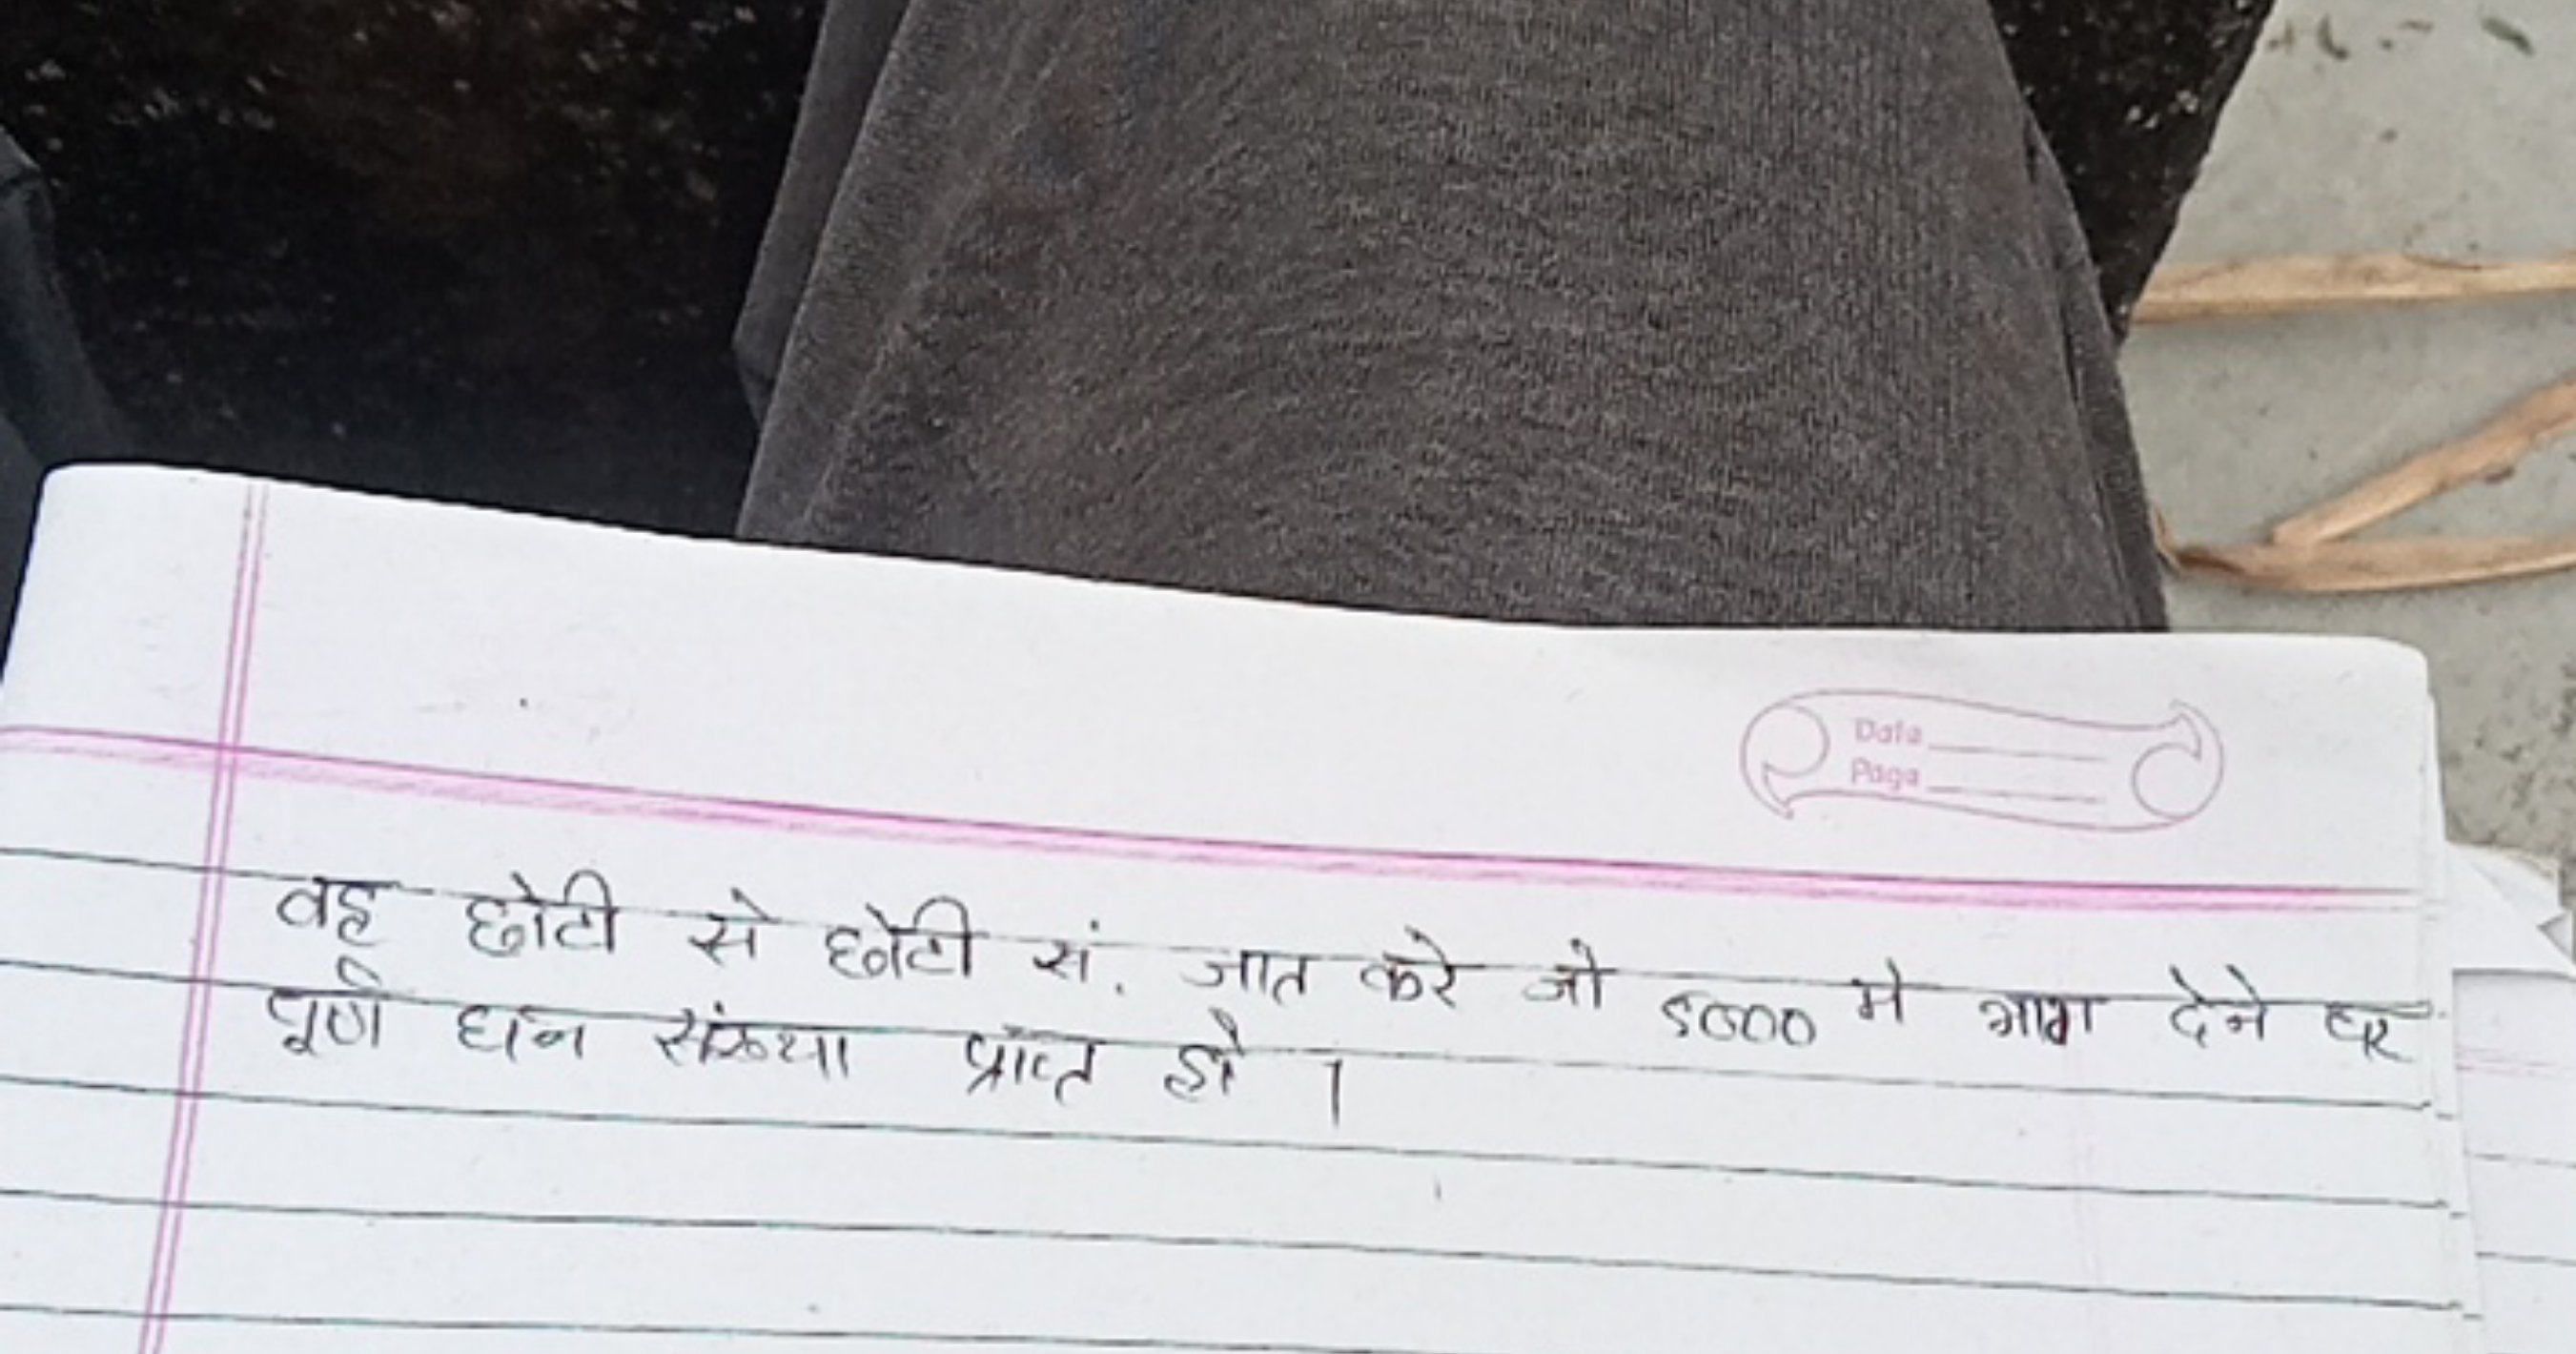 Date
Page
वह छोटी से छोटी सं. ज्ञात करे जो 5000 मे भाग देने पर
पूर्ण घन संख्या प्राप्त हो ।